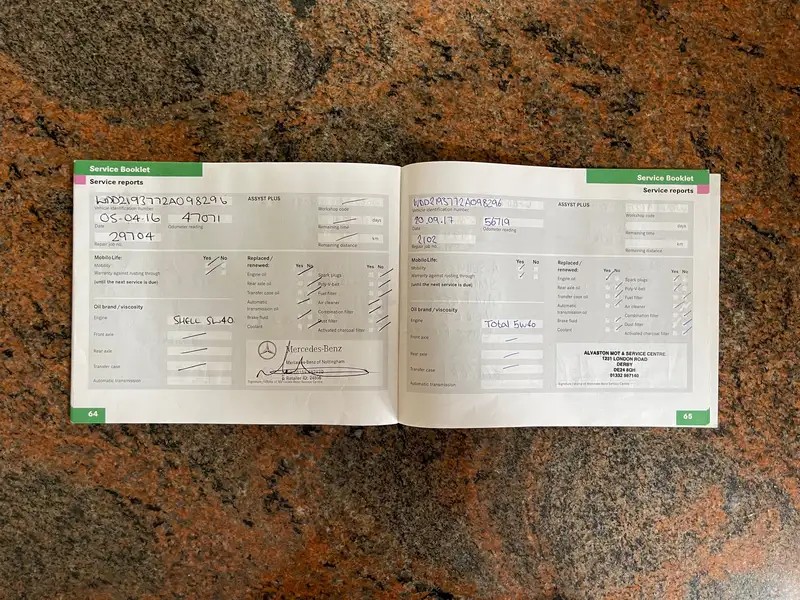 Service Booklet
Service reports
WDD2193772A098296
Vehicle identification number
05-04-16 47071
Date Odometer reading
29704
Repair job no.
ASSYST PLUS
Workshop code
days
Remaining time
km
Remaining distance
MobiloLife: Yes No
Mobility
Warranty against rusting through
(until the next service is due)
Oil brand / viscosity
Engine SHELL 5W40
Front axle
Rear axle
Transfer case
Automatic transmission
Replaced/
renewed: Yes No Yes No
Engine oil Spark plugs
Rear axle oil Poly-V-belt
Transfer case oil Fuel filter
Automatic Air cleaner
transmission oil Combination filter
Brake fluid Dust filter
Coolant Activated charcoal filter
Mercedes-Benz
Mercedes-Benz of Nottingham
Signature / stamp of Mercedes-Benz Service Centre
64
Service Booklet
Service reports
WDD2193772A098296
Vehicle identification number
20.09.17 56719
Date Odometer reading
2102
Repair job no.
ASSYST PLUS
Workshop code
days
Remaining time
km
Remaining distance
MobiloLife: Yes No
Mobility
Warranty against rusting through
(until the next service is due)
Oil brand / viscosity
Engine Total 5W40
Front axle
Rear axle
Transfer case
Automatic transmission
Replaced/
renewed: Yes No Yes No
Engine oil Spark plugs
Rear axle oil Poly-V-belt
Transfer case oil Fuel filter
Automatic Air cleaner
transmission oil Combination filter
Brake fluid Dust filter
Coolant Activated charcoal filter
ALVASTON MOT & SERVICE CENTRE
1231 LONDON ROAD
DERBY
DE24 8QH
01332 987140
Signature / stamp of Mercedes-Benz Service Centre
65